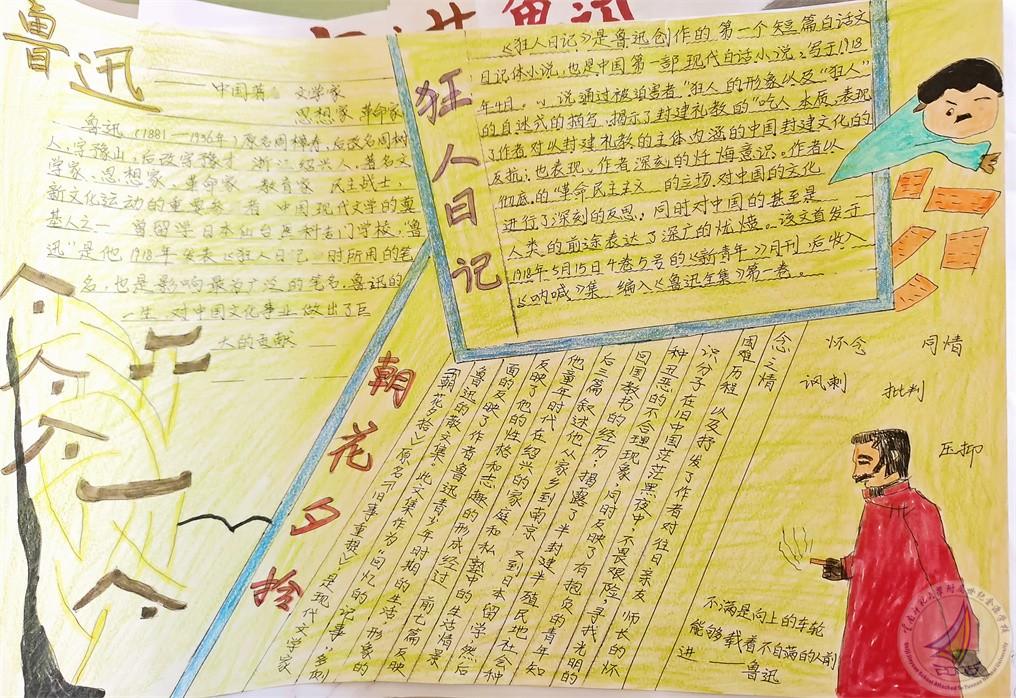 鲁迅
中国著 文学家
思想家 革命家
鲁迅(1881—1936年)原名周樟寿,后改名周树
人,字豫山,后改字豫才 浙江绍兴人 著名文
学家、思想家、革命家 教育家 民主战士,
新文化运动的重要参 者 中国现代文学的奠
基人之一 曾留学日本仙台 科 门学校,"鲁
迅"是他1918年发表《狂人日记》时所用的笔
名,也是影响最为广泛的笔名,鲁迅的
一生 对中国文化事业 做出了巨
大的贡献
狂人日记
《狂人日记》是鲁迅创作的第一个短篇白话文
日记体小说,也是中国第一部现代白话小说,写于1918
年4月。 说通过被迫害者"狂人"的形象以及"狂人"
的自述式的描写,揭示了封建礼教的"吃人"本质,表现
了作者对以封建礼教的主体内涵的中国封建文化的
反抗;也表现 作者深刻的忏悔意识。作者以
彻底的"革命民主主义 的立场 对中国的文化
进行了深刻的反思,同时对中国的甚至是
人类的前途表达了深广的忧愤。该文首发于
1918年5月15日4卷5号的《新青年》月刊,后收入
《呐喊》集 编入《鲁迅全集》第一卷。
朝花夕拾
《朝花夕拾》原名《旧事重提》 是现代文学家
鲁迅的散文集。此文集作为"回忆的记事"多 
面的反映了作者鲁迅青少年时期的生活 形象的
反映了他的性格和志趣的形成经过 前七篇反映
他童年时代在绍兴的家庭和私塾中的生活情景
后三篇叙述他从家乡到南京 又到日本留学 然后
回国教书的经历;揭露了半封建半殖民地社会种
种丑恶的不合理现象 同时反映了有抱负的青年知
识分子在旧中国茫茫黑夜中 不畏艰险,寻找光明的
困难历程 以及抒发了作者对往日亲友 师长的怀
念之情
怀念 同情
讽刺 批判
压抑
不满是向上的车轮
能够载着不自满的人前
进 ——鲁迅